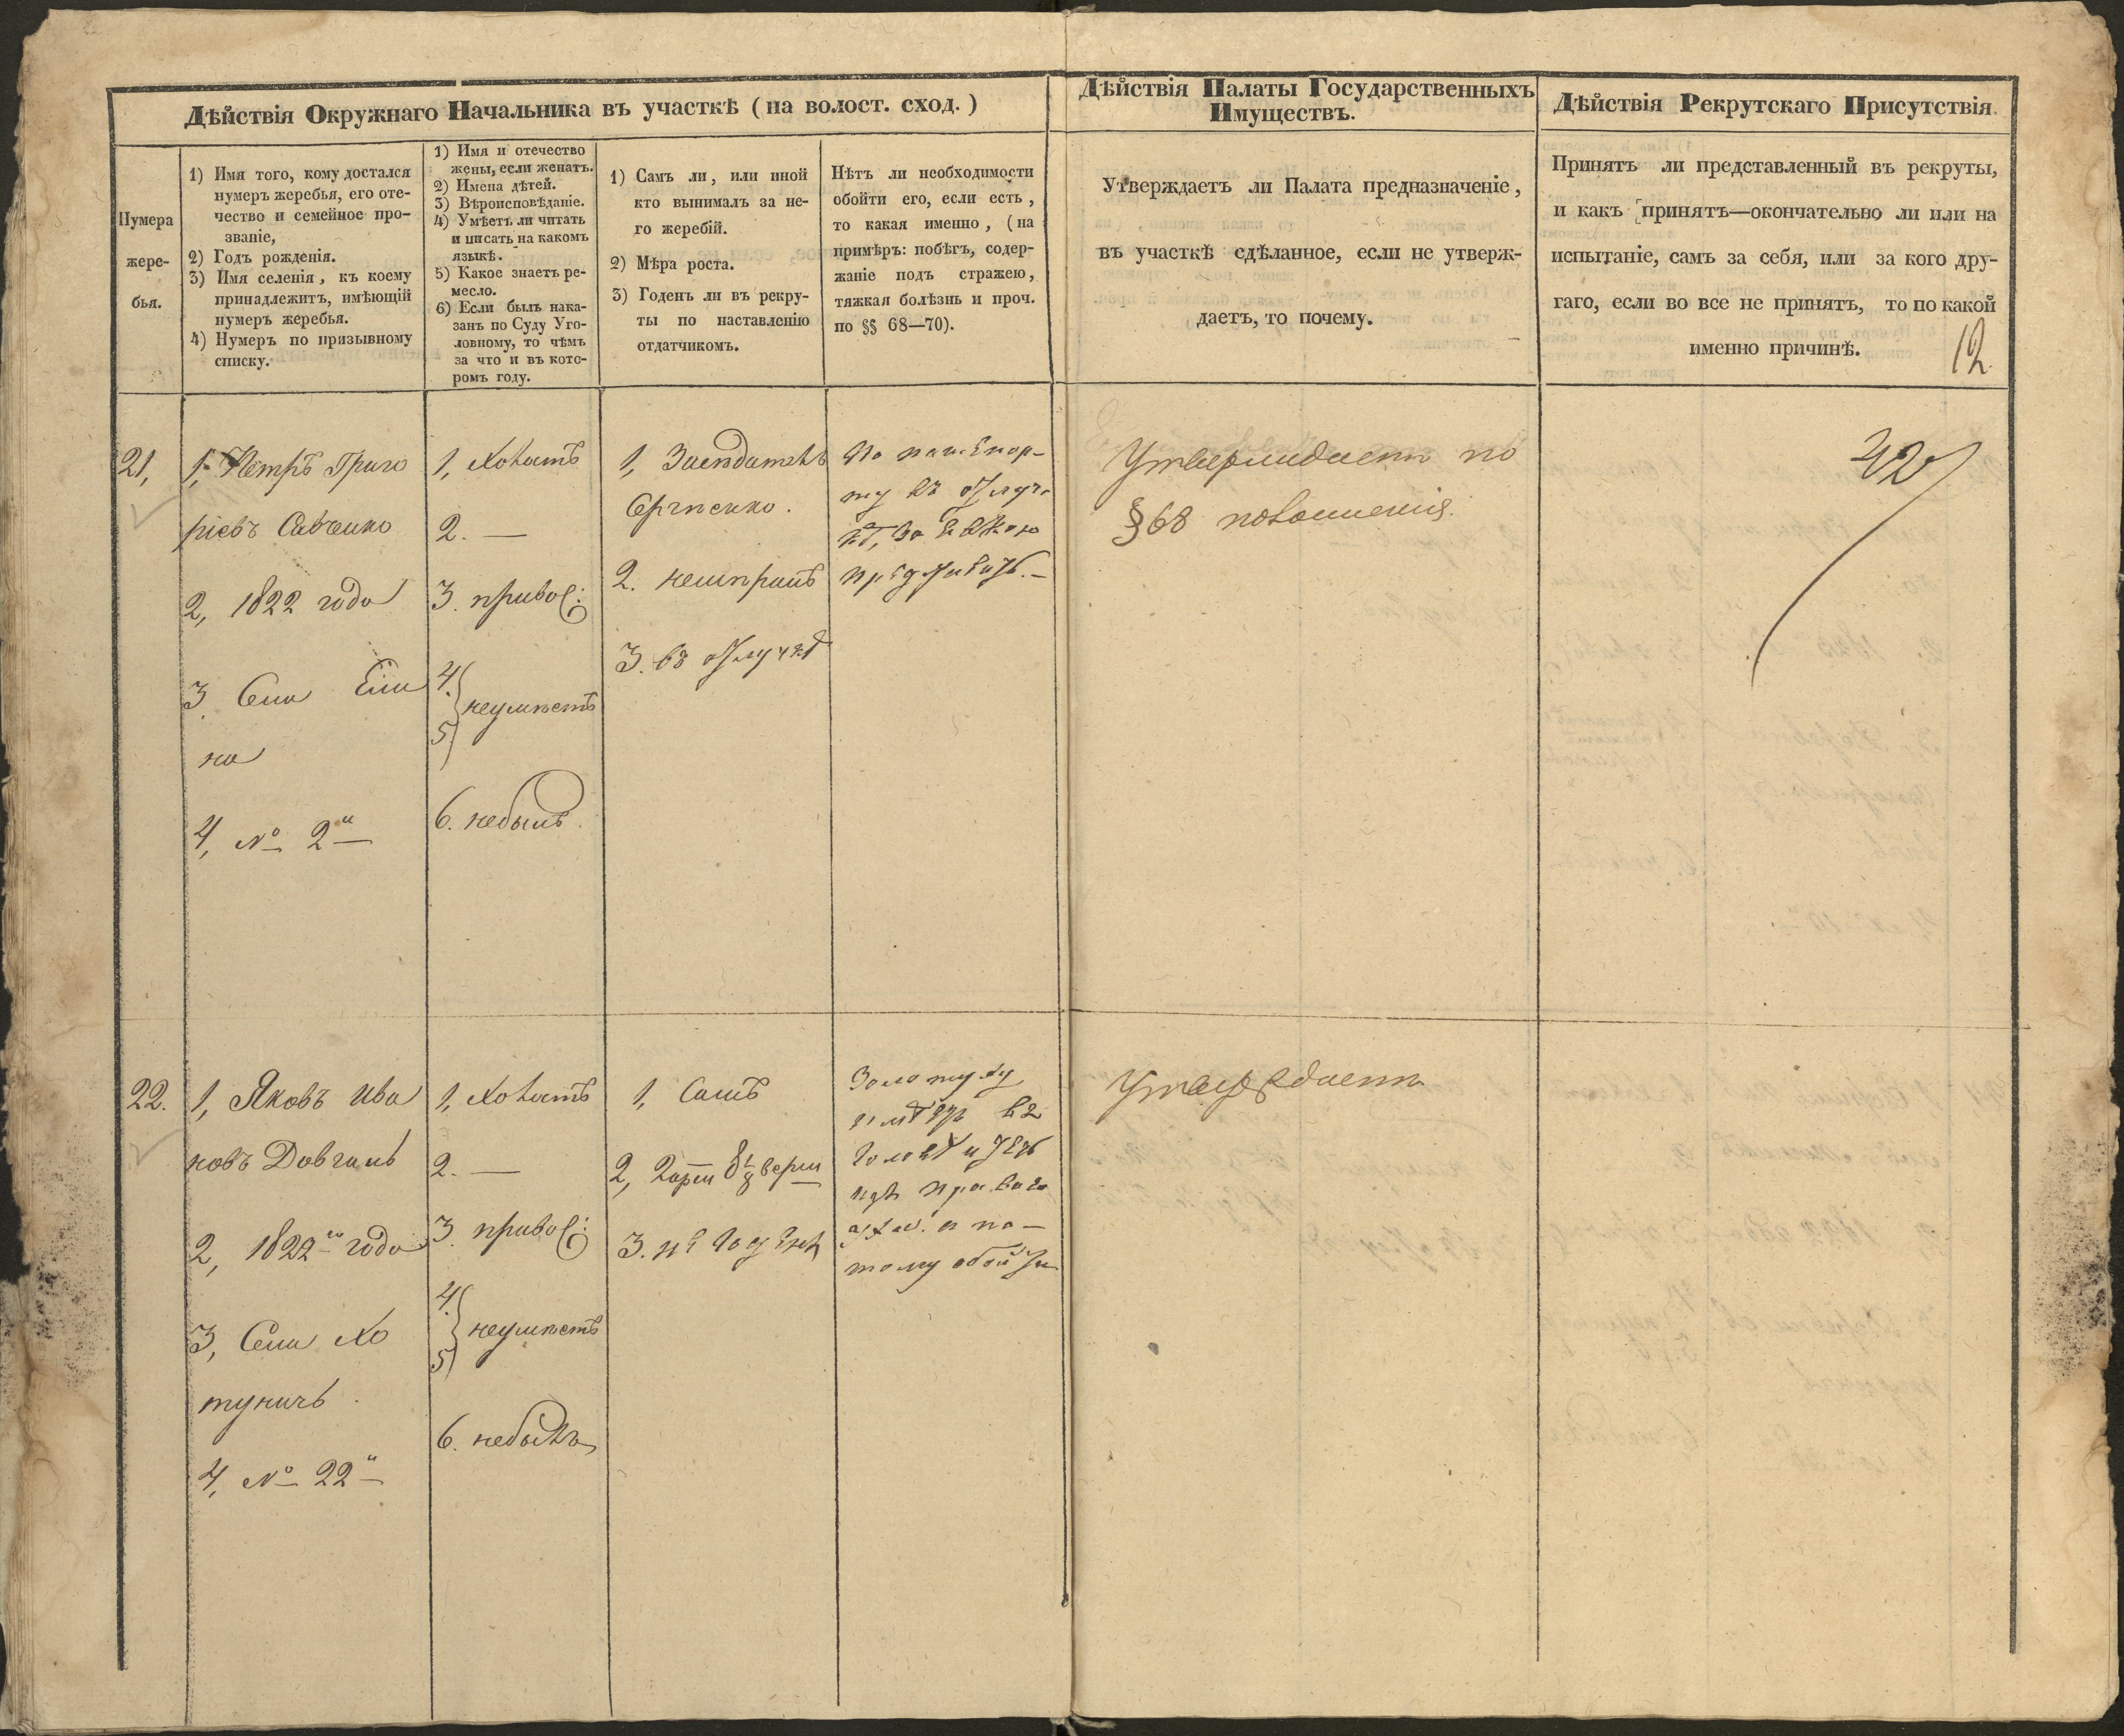 Дѣйствія Окружнаго Начальника въ участкѣ (на волост. сход.)
Дѣйствія Палаты Государственныхъ
Имуществъ.
Дѣйствія Рекрутскаго Присутствія.
Нумера
жере-
бья.
1) Имя того, кому достался
нумеръ жеребья, его оте-
чество и семейное про-
званіе,
2) Годъ рожденія.
3) Имя селенія, къ коему
принадлежитъ, имѣющій
нумеръ жеребья.
4) Нумеръ по призывному
списку.
1) Имя и отечество
жены, если женатъ.
2) Имена дѣтей.
3) Вѣроисповѣданіе.
4) Умѣетъ ли читать
и писать на какомъ
языкѣ.
5) Какое знаетъ ре-
месло.
6) Если былъ нака-
занъ по Суду Уго-
ловному, то чѣмъ
за что и въ кото-
ромъ году.
1) Самъ ли, или иной
кто вынималъ за не-
го жеребій.
2) Мѣра роста.
3) Годенъ ли въ рекру-
ты по наставленію
отдатчикомъ.
Нѣтъ ли необходимости
обойти его, если есть,
то какая именно, (на
примѣръ: побѣгъ, содер-
жаніе подъ стражею,
тяжкая болѣзнь и проч.
по §§ 68—70).
Утверждаетъ ли Палата предназначеніе,
въ участкѣ сдѣланное, если не утверж-
даетъ, то почему.
Принятъ ли представленный въ рекруты,
и какъ принятъ—окончательно ли или на
испытаніе, самъ за себя, или за кого дру-
гаго, если во все не принятъ, то по какой
именно причинѣ.
12.
21,
1, Петръ Григо
ріевъ Савченко
2, 1822 года
3. Села
на
4, № 2й
1, Холостъ
2. —
3. правос:
4.
5
неумѣетъ
6. небылъ
1, Засѣдатель
Сергѣенко.
2. неширамъ
3. въ отлучкѣ
По паспор-
ту въ отлуч-
кѣ, за
Утверждаетъ по
§ 68 положенія.
42
22.
1, Яковъ Ива
новъ Довгаль
2, 1822го года
3, Села Хо
туничь
4, № 22й
1, Холостъ
2. —
3. правос:
4.
5
неумѣетъ
6. небылъ
1, Самъ
2, 2 арш 8/ верш
3. не годенъ
Золотуху
имѣетъ въ
головѣ и течь
изъ праваго
уха. а по-
тому обойти
Утверждаетъ